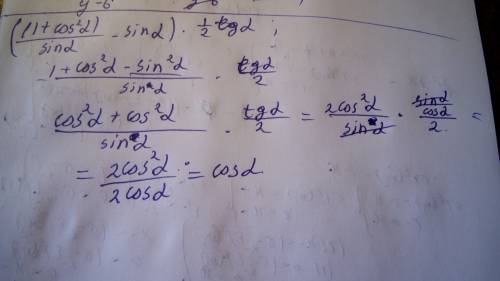 y-6
((1+cos²α)/sinα - sinα) · 1/2 tgα ;
(1+cos²α-sin²α)/sinα · tgα/2
(cos²α+cos²α)/sinα · tgα/2 = 2cos²α/sinα · (sinα/cosα)/2 =
= 2cos²α/2cosα = cosα